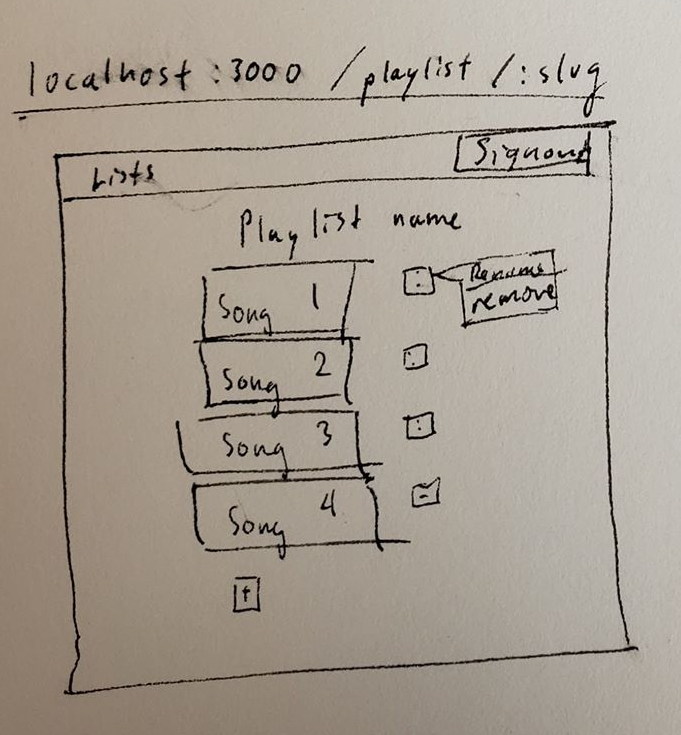 localhost:3000 /playlist /:slug
Lists
Signout
Playlist name
Song 1
Rename
remove
Song 2
Song 3
Song 4
+